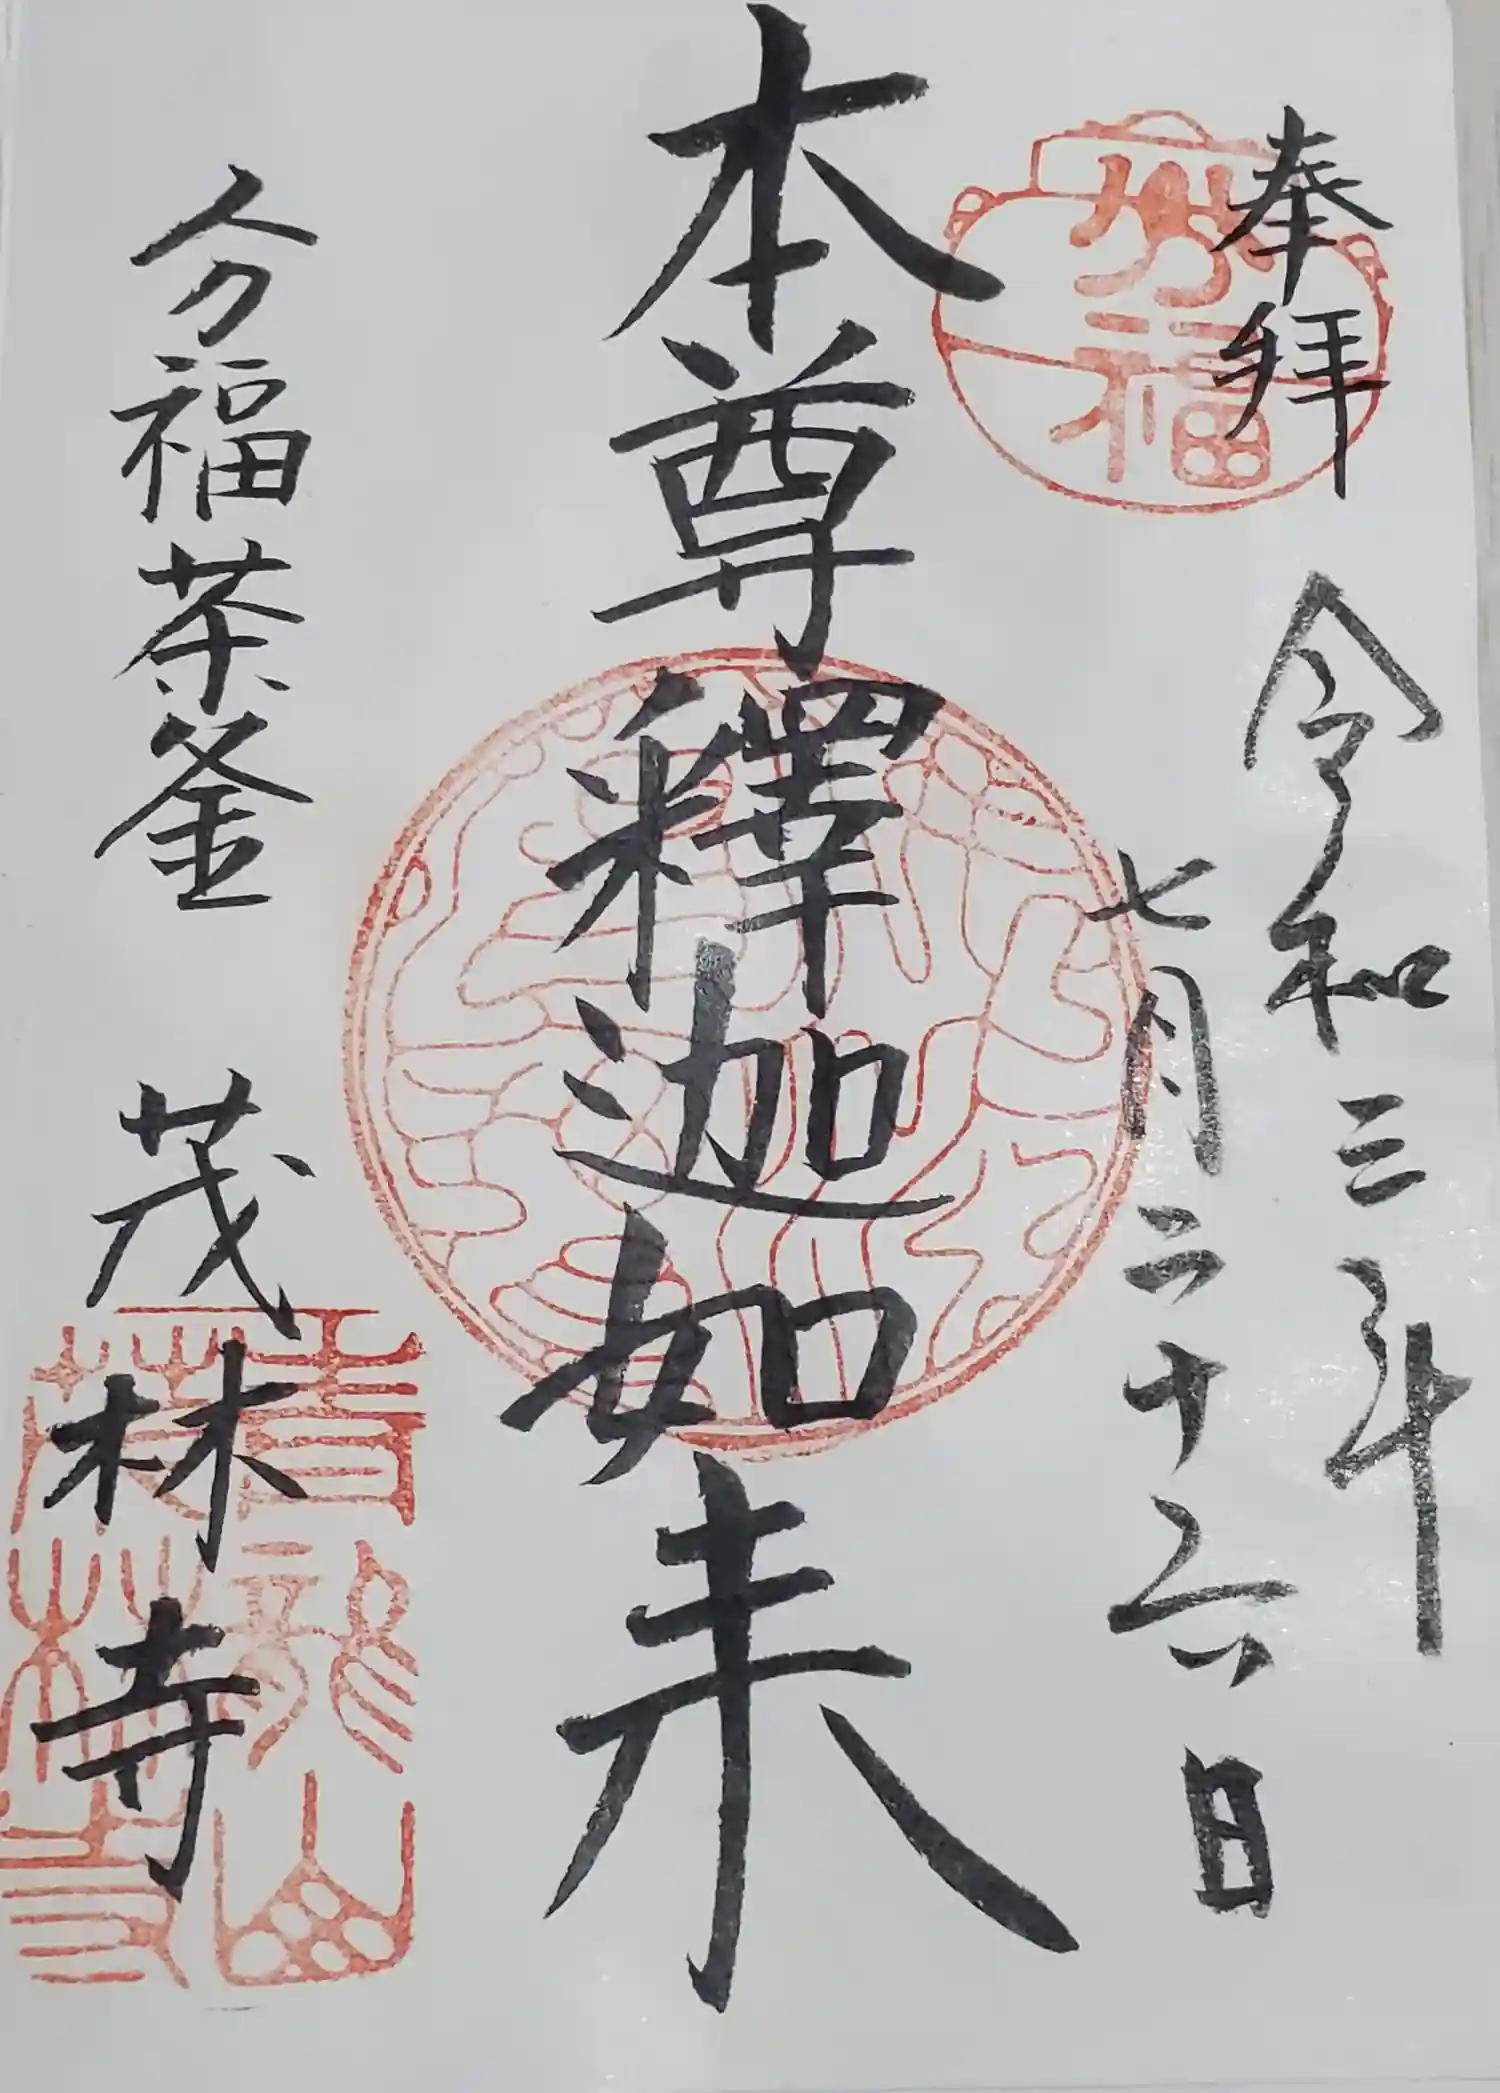 奉拝
令和三年
七月二十六日
本尊釋迦如来
分福茶釜
茂林寺
分福
青龍山
茂林寺